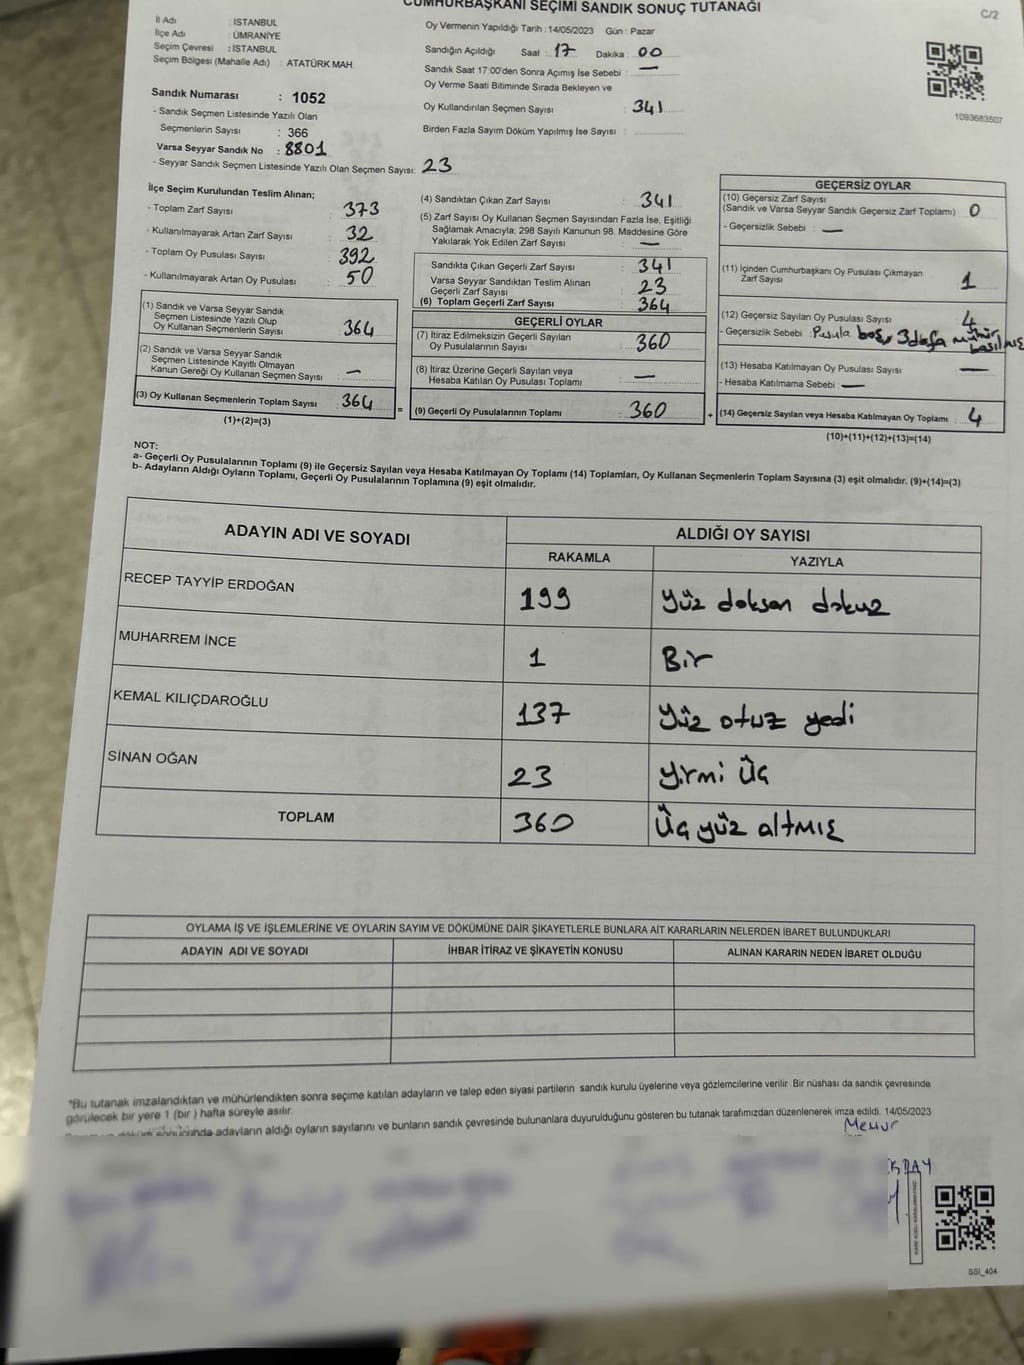 CUMHURBAŞKANI SEÇİMİ SANDIK SONUÇ TUTANAĞI
C/2
İl Adı : İSTANBUL
İlçe Adı : ÜMRANİYE
Seçim Çevresi : İSTANBUL
Seçim Bölgesi (Mahalle Adı) : ATATÜRK MAH.
Sandık Numarası : 1052
- Sandık Seçmen Listesinde Yazılı Olan
Seçmenlerin Sayısı : 366
Varsa Seyyar Sandık No : 8801
- Seyyar Sandık Seçmen Listesinde Yazılı Olan Seçmen Sayısı: 23
Oy Vermenin Yapıldığı Tarih : 14/05/2023 Gün : Pazar
Sandığın Açıldığı Saat : 17 Dakika : 00
Sandık Saat 17:00'den Sonra Açımış İse Sebebi : —
Oy Verme Saati Bitiminde Sırada Bekleyen ve
Oy Kullandırılan Seçmen Sayısı : 341
Birden Fazla Sayım Döküm Yapılmış İse Sayısı :
1093683507
İlçe Seçim Kurulundan Teslim Alınan;
- Toplam Zarf Sayısı : 373
- Kullanılmayarak Artan Zarf Sayısı : 32
- Toplam Oy Pusulası Sayısı : 392
- Kullanılmayarak Artan Oy Pusulası : 50
(1) Sandık ve Varsa Seyyar Sandık
Seçmen Listesinde Yazılı Olup
Oy Kullanan Seçmenlerin Sayısı : 364
(2) Sandık ve Varsa Seyyar Sandık
Seçmen Listesinde Kayıtlı Olmayan
Kanun Gereği Oy Kullanan Seçmen Sayısı : —
(3) Oy Kullanan Seçmenlerin Toplam Sayısı : 364
(1)+(2)=(3)
(4) Sandıktan Çıkan Zarf Sayısı : 341
(5) Zarf Sayısı Oy Kullanan Seçmen Sayısından Fazla İse, Eşitliği
Sağlamak Amacıyla; 298 Sayılı Kanunun 98. Maddesine Göre
Yakılarak Yok Edilen Zarf Sayısı : —
Sandıkta Çıkan Geçerli Zarf Sayısı : 341
Varsa Seyyar Sandıktan Teslim Alınan
Geçerli Zarf Sayısı : 23
(6) Toplam Geçerli Zarf Sayısı : 364
GEÇERLİ OYLAR
(7) İtiraz Edilmeksizin Geçerli Sayılan
Oy Pusulalarının Sayısı : 360
(8) İtiraz Üzerine Geçerli Sayılan veya
Hesaba Katılan Oy Pusulası Toplamı : —
= (9) Geçerli Oy Pusulalarının Toplamı : 360
GEÇERSİZ OYLAR
(10) Geçersiz Zarf Sayısı
(Sandık ve Varsa Seyyar Sandık Geçersiz Zarf Toplamı) : 0
- Geçersizlik Sebebi : —
(11) İçinden Cumhurbaşkanı Oy Pusulası Çıkmayan
Zarf Sayısı : 1
(12) Geçersiz Sayılan Oy Pusulası Sayısı : 4
- Geçersizlik Sebebi : Pusula boş, 3 defa mühür
basılmış
(13) Hesaba Katılmayan Oy Pusulası Sayısı : —
- Hesaba Katılmama Sebebi : —
+ (14) Geçersiz Sayılan veya Hesaba Katılmayan Oy Toplamı : 4
(10)+(11)+(12)+(13)=(14)
NOT:
a- Geçerli Oy Pusulalarının Toplamı (9) ile Geçersiz Sayılan veya Hesaba Katılmayan Oy Toplamı (14) Toplamları, Oy Kullanan Seçmenlerin Toplam Sayısına (3) eşit olmalıdır. (9)+(14)=(3)
b- Adayların Aldığı Oyların Toplamı, Geçerli Oy Pusulalarının Toplamına (9) eşit olmalıdır.
ADAYIN ADI VE SOYADI
ALDIĞI OY SAYISI
RAKAMLA YAZIYLA
RECEP TAYYİP ERDOĞAN 199 Yüz doksan dokuz
MUHARREM İNCE 1 Bir
KEMAL KILIÇDAROĞLU 137 Yüz otuz yedi
SİNAN OĞAN 23 Yirmi üç
TOPLAM 360 Üç yüz altmış
OYLAMA İŞ VE İŞLEMLERİNE VE OYLARIN SAYIM VE DÖKÜMÜNE DAİR ŞİKAYETLERLE BUNLARA AİT KARARLARIN NELERDEN İBARET BULUNDUKLARI
ADAYIN ADI VE SOYADI İHBAR İTİRAZ VE ŞİKAYETİN KONUSU ALINAN KARARIN NEDEN İBARET OLDUĞU
*Bu tutanak imzalandıktan ve mühürlendikten sonra seçime katılan adayların ve talep eden siyasi partilerin sandık kurulu üyelerine veya gözlemcilerine verilir. Bir nüshası da sandık çevresinde
görülecek bir yere 1 (bir ) hafta süreyle asılır.
sonucunda adayların aldığı oyların sayılarını ve bunların sandık çevresinde bulunanlara duyurulduğunu gösteren bu tutanak tarafımızdan düzenlenerek imza edildi. 14/05/2023
Memur
SSI_404